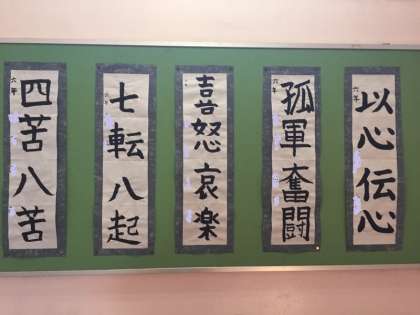 以心伝心
六年
孤軍奮闘
六年
喜怒哀楽
七転八起
四苦八苦
六年